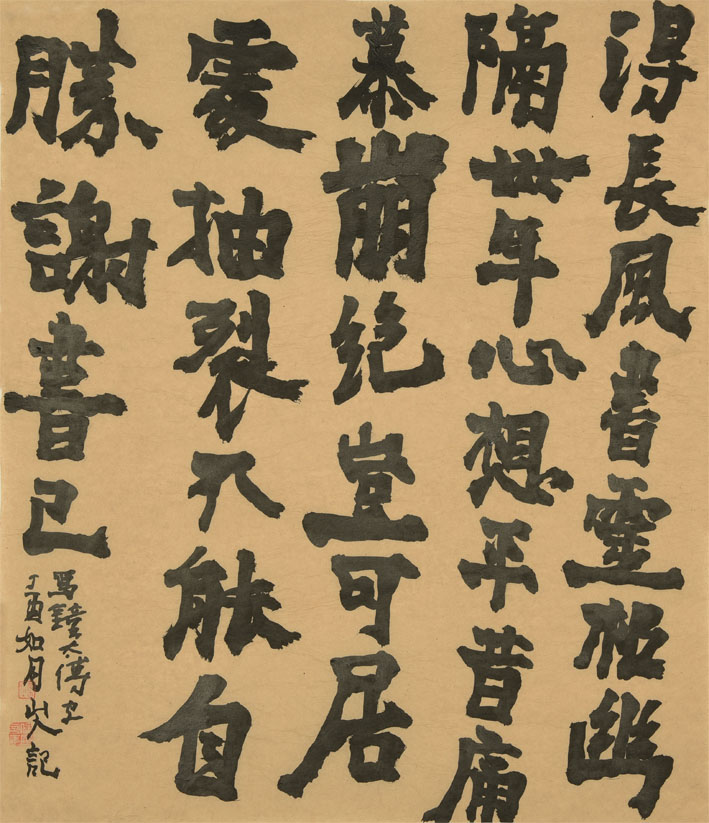 得長風書靈柩幽
隔卅年心想平昔痛
慕崩绝豈可居
處抽裂不能自
勝謝書已
寫鐘太傅
丁酉如月山人記